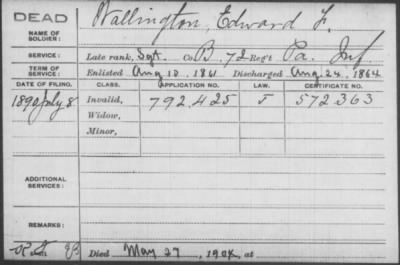 DEAD
NAME OF SOLDIER: Wallington, Edward F.
SERVICE: Late rank, Sgt. Co. B, 72 Reg't Pa. Inf.
TERM OF SERVICE: Enlisted Aug. 10, 1861 Discharged Aug. 24, 1864
DATE OF FILING. CLASS. APPLICATION NO. LAW. CERTIFICATE NO.
1890 July 8 Invalid, 792.425 J 572363
Widow,
Minor,
ADDITIONAL SERVICES:
REMARKS:
Died May 27, 190 at